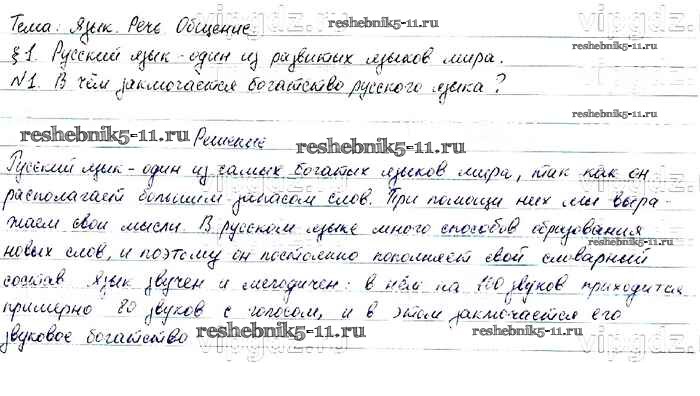 Тема: Язык. Речь. Общение.
§ 1. Русский язык - один из развитых языков мира.
N1. В чём заключается богатство русского языка?
Решение
Русский язык - один из самых богатых языков мира, так как он
располагает большим запасом слов. При помощи них мы выра-
жаем свои мысли. В русском языке много способов образования
новых слов, и поэтому он постоянно пополняет свой словарный
состав Язык звучен и мелодичен: в нём на 100 звуков приходится
примерно 80 звуков с голосом, и в этом заключается его
звуковое богатство
reshebnik5-11.ru
reshebnik5-11.ru
reshebnik5-11.ru
reshebnik5-11.ru
reshebnik5-11.ru
reshebnik5-11.ru
reshebnik5-11.ru
vipgdz.ru
vipgdz.ru
vipgdz.ru